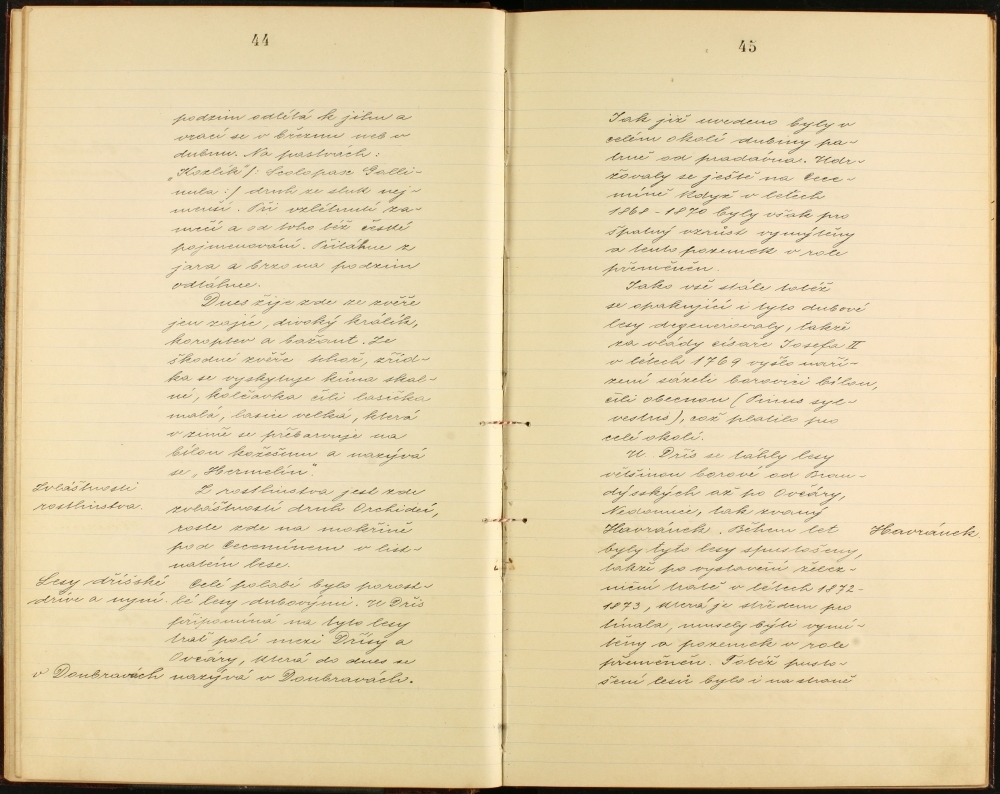 44
podzim odlétá k jihu a
vrací se v březnu neb v
dubnu. Na pastvách :
„Kozlík“/: Scolopax Galli-
nula :/ druh ze sluk nej-
menší. Při vzlétnutí za-
mečí a od toho též české
pojmenování. Přitáhne z
jara a brzo na podzim
odtáhne.
Dnes žije zde ze zvěře
jen zajíc, divoký králík,
koroptev a bažant. Ze
škodné zvěře tchoř, zříd-
ka se vyskytuje kůna skal-
ní, kolčavka čili lasička
malá, lasice velká, která
v zimě se přebarvuje na
bílou kožešinu a nazývá
se „Hermelín“.
Zvláštnosti
rostlinstva.
Z rostlinstva jest zde
zvláštností druh Orchideí,
roste zde na mokřině
pod Cecemínem v list-
natém lese.
Lesy dříšské
dříve a nyní.
Celé polabí bylo porost-
lé lesy dubovými. U Dřís
připomíná na tyto lesy
trať polí mezi Dřísy a
Ovčáry, která do dnes se
v Doubravách
nazývá v Doubravách.
45
Jak již uvedeno byly v
celém okolí dubiny pa-
trně od pradávna. Udr-
žovaly se ještě na Cece-
míně když v letech
1868 - 1870 byly však pro
špatný vzrůst vymýtěny
a tento pozemek v role
přeměněn.
Jako vše stále totéž
se opakující i tyto dubové
lesy degenerovaly, takže
za vlády císaře Josefa II
v létech 1769 vyšlo naří-
zení sázeti borovici bílou,
čili obecnou (Pinus syl-
vestris), což platilo pro
celé okolí.
U Dřís se táhly lesy
většinou borové od Bran-
dýsských až po Ovčáry,
Nedomice, tak zvaný
Havránek. Během let
Havránek
byly tyto lesy spustošeny,
takže po vystavění želez-
niční tratě v létech 1872-
1873, která je středem pro
tínala, musely býti vymí-
těny a pozemek v role
přeměněn. Totéž pusto-
šení lesů bylo i na straně